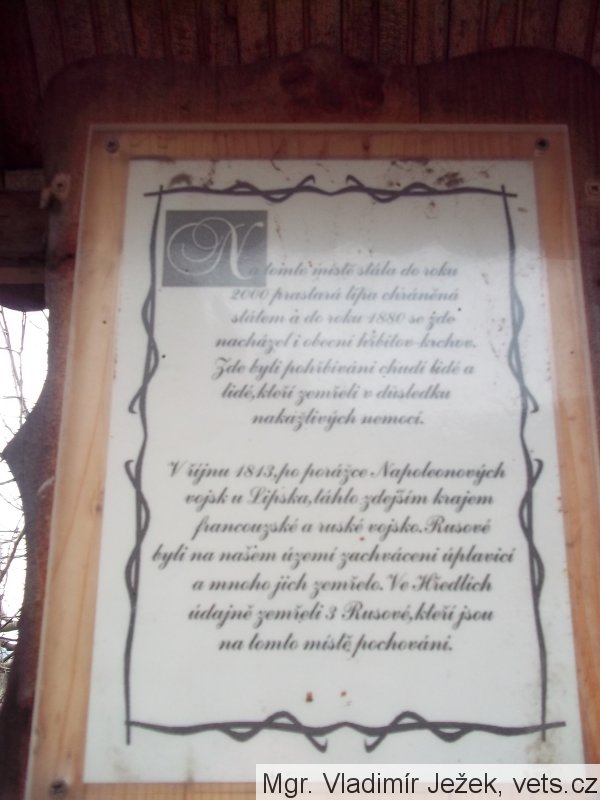 Na tomto místě stála do roku
2000 prastará lípa chráněná
státem a do roku 1880 se zde
nacházel i obecní hřbitov-krchov.
Zde byli pohřbíváni chudí lidé a
lidé,kteří zemřeli v důsledku
nakažlivých nemocí.
V říjnu 1813,po porážce Napoleonových
vojsk u Lipska,táhlo zdejším krajem
francouzské a ruské vojsko.Rusové
byli na našem území zachváceni úplavicí
a mnoho jich zemřelo.Ve Hředlích
údajně zemřeli 3 Rusové,kteří jsou
na tomto místě pochováni.
Mgr. Vladimír Ježek, vets.cz